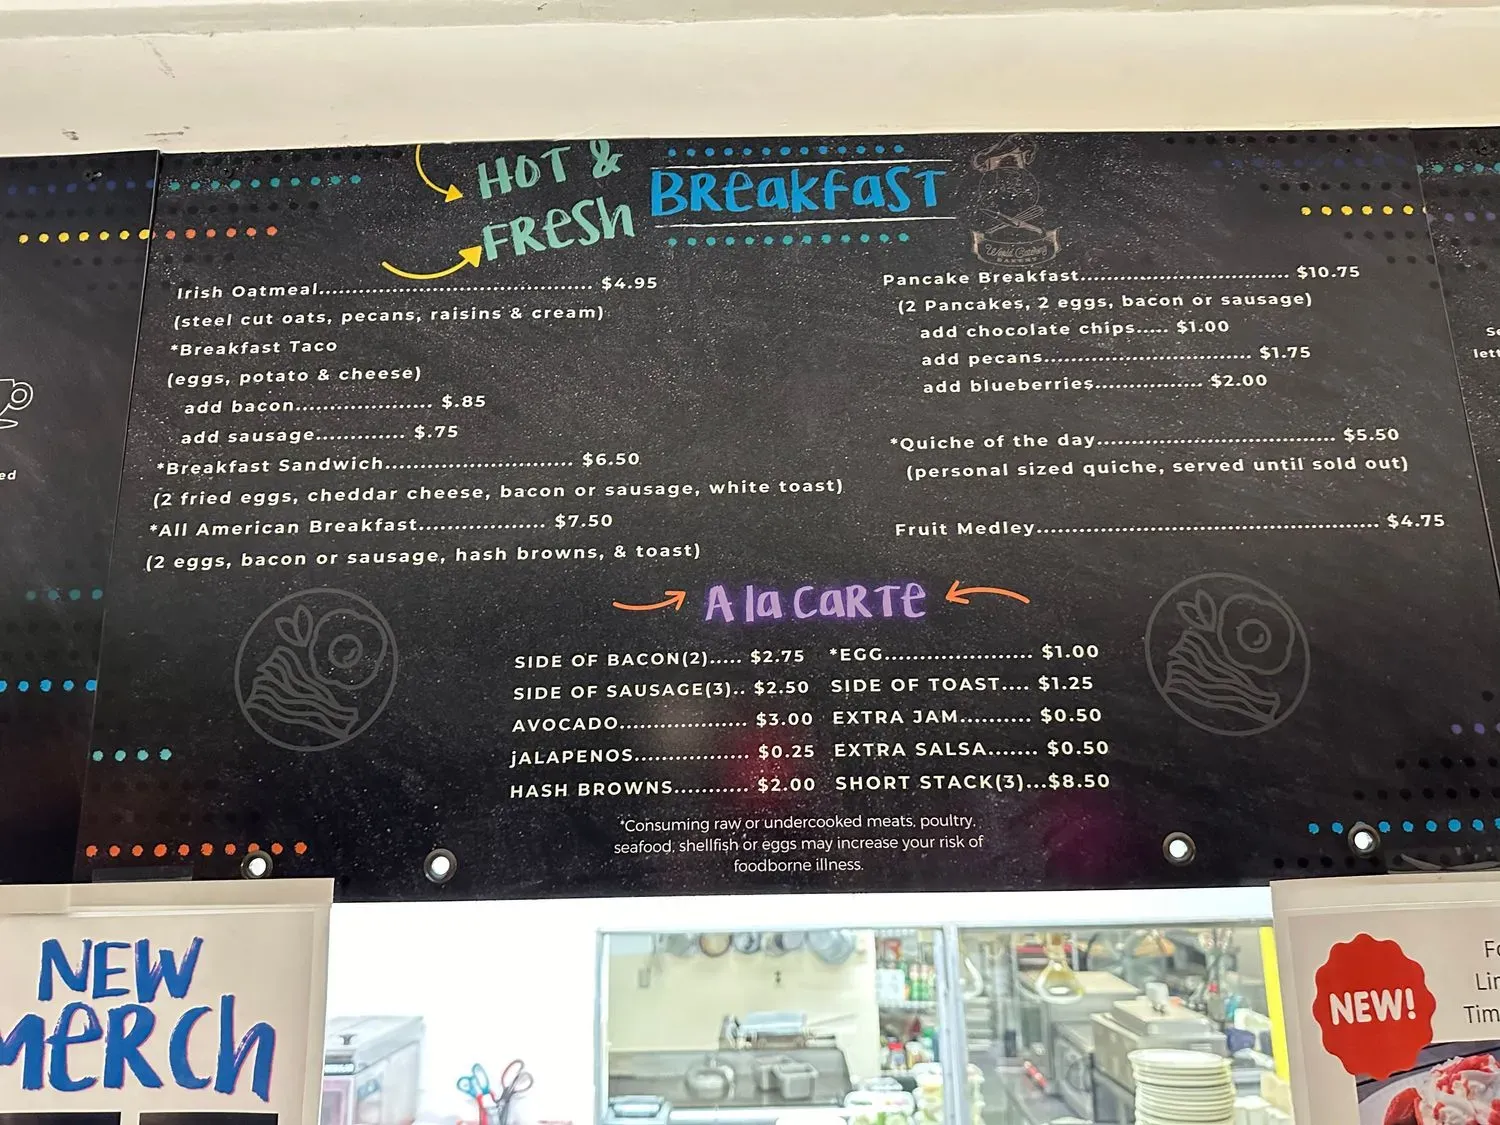 HOT &
FRESH
BREAKFAST
World Catering
BAKERY
Irish Oatmeal........................................ $4.95
(steel cut oats, pecans, raisins & cream)
*Breakfast Taco
(eggs, potato & cheese)
add bacon.................... $.85
add sausage............. $.75
*Breakfast Sandwich........................... $6.50
(2 fried eggs, cheddar cheese, bacon or sausage, white toast)
*All American Breakfast.................. $7.50
(2 eggs, bacon or sausage, hash browns, & toast)
Pancake Breakfast.............................. $10.75
(2 Pancakes, 2 eggs, bacon or sausage)
add chocolate chips..... $1.00
add pecans................................ $1.75
add blueberries................ $2.00
*Quiche of the day.................................. $5.50
(personal sized quiche, served until sold out)
Fruit Medley................................................. $4.75
A la CARTE
SIDE OF BACON(2)..... $2.75
SIDE OF SAUSAGE(3).. $2.50
AVOCADO................... $3.00
jALAPENOS................. $0.25
HASH BROWNS........... $2.00
*EGG...................... $1.00
SIDE OF TOAST.... $1.25
EXTRA JAM.......... $0.50
EXTRA SALSA....... $0.50
SHORT STACK(3)...$8.50
*Consuming raw or undercooked meats, poultry,
seafood, shellfish or eggs may increase your risk of
foodborne illness.
ed
Se
lett
NEW
MERCH
NEW!
Fo
Lin
Tim